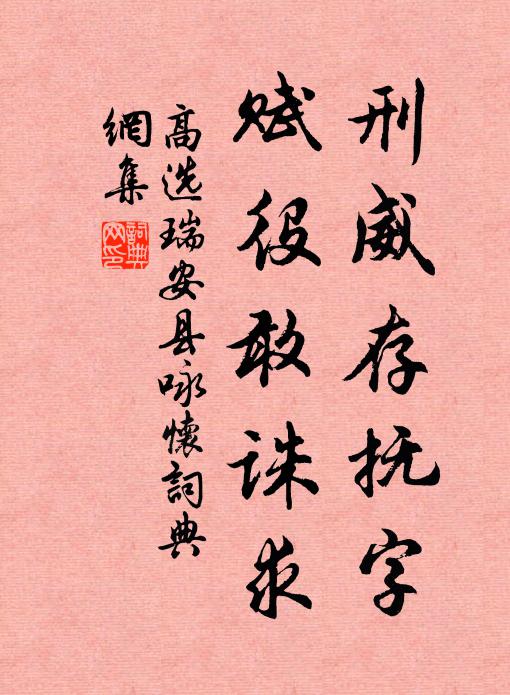 刑威存抚字
赋役敢诛求
高选瑞安县咏懷詞典
網集
詞典網印